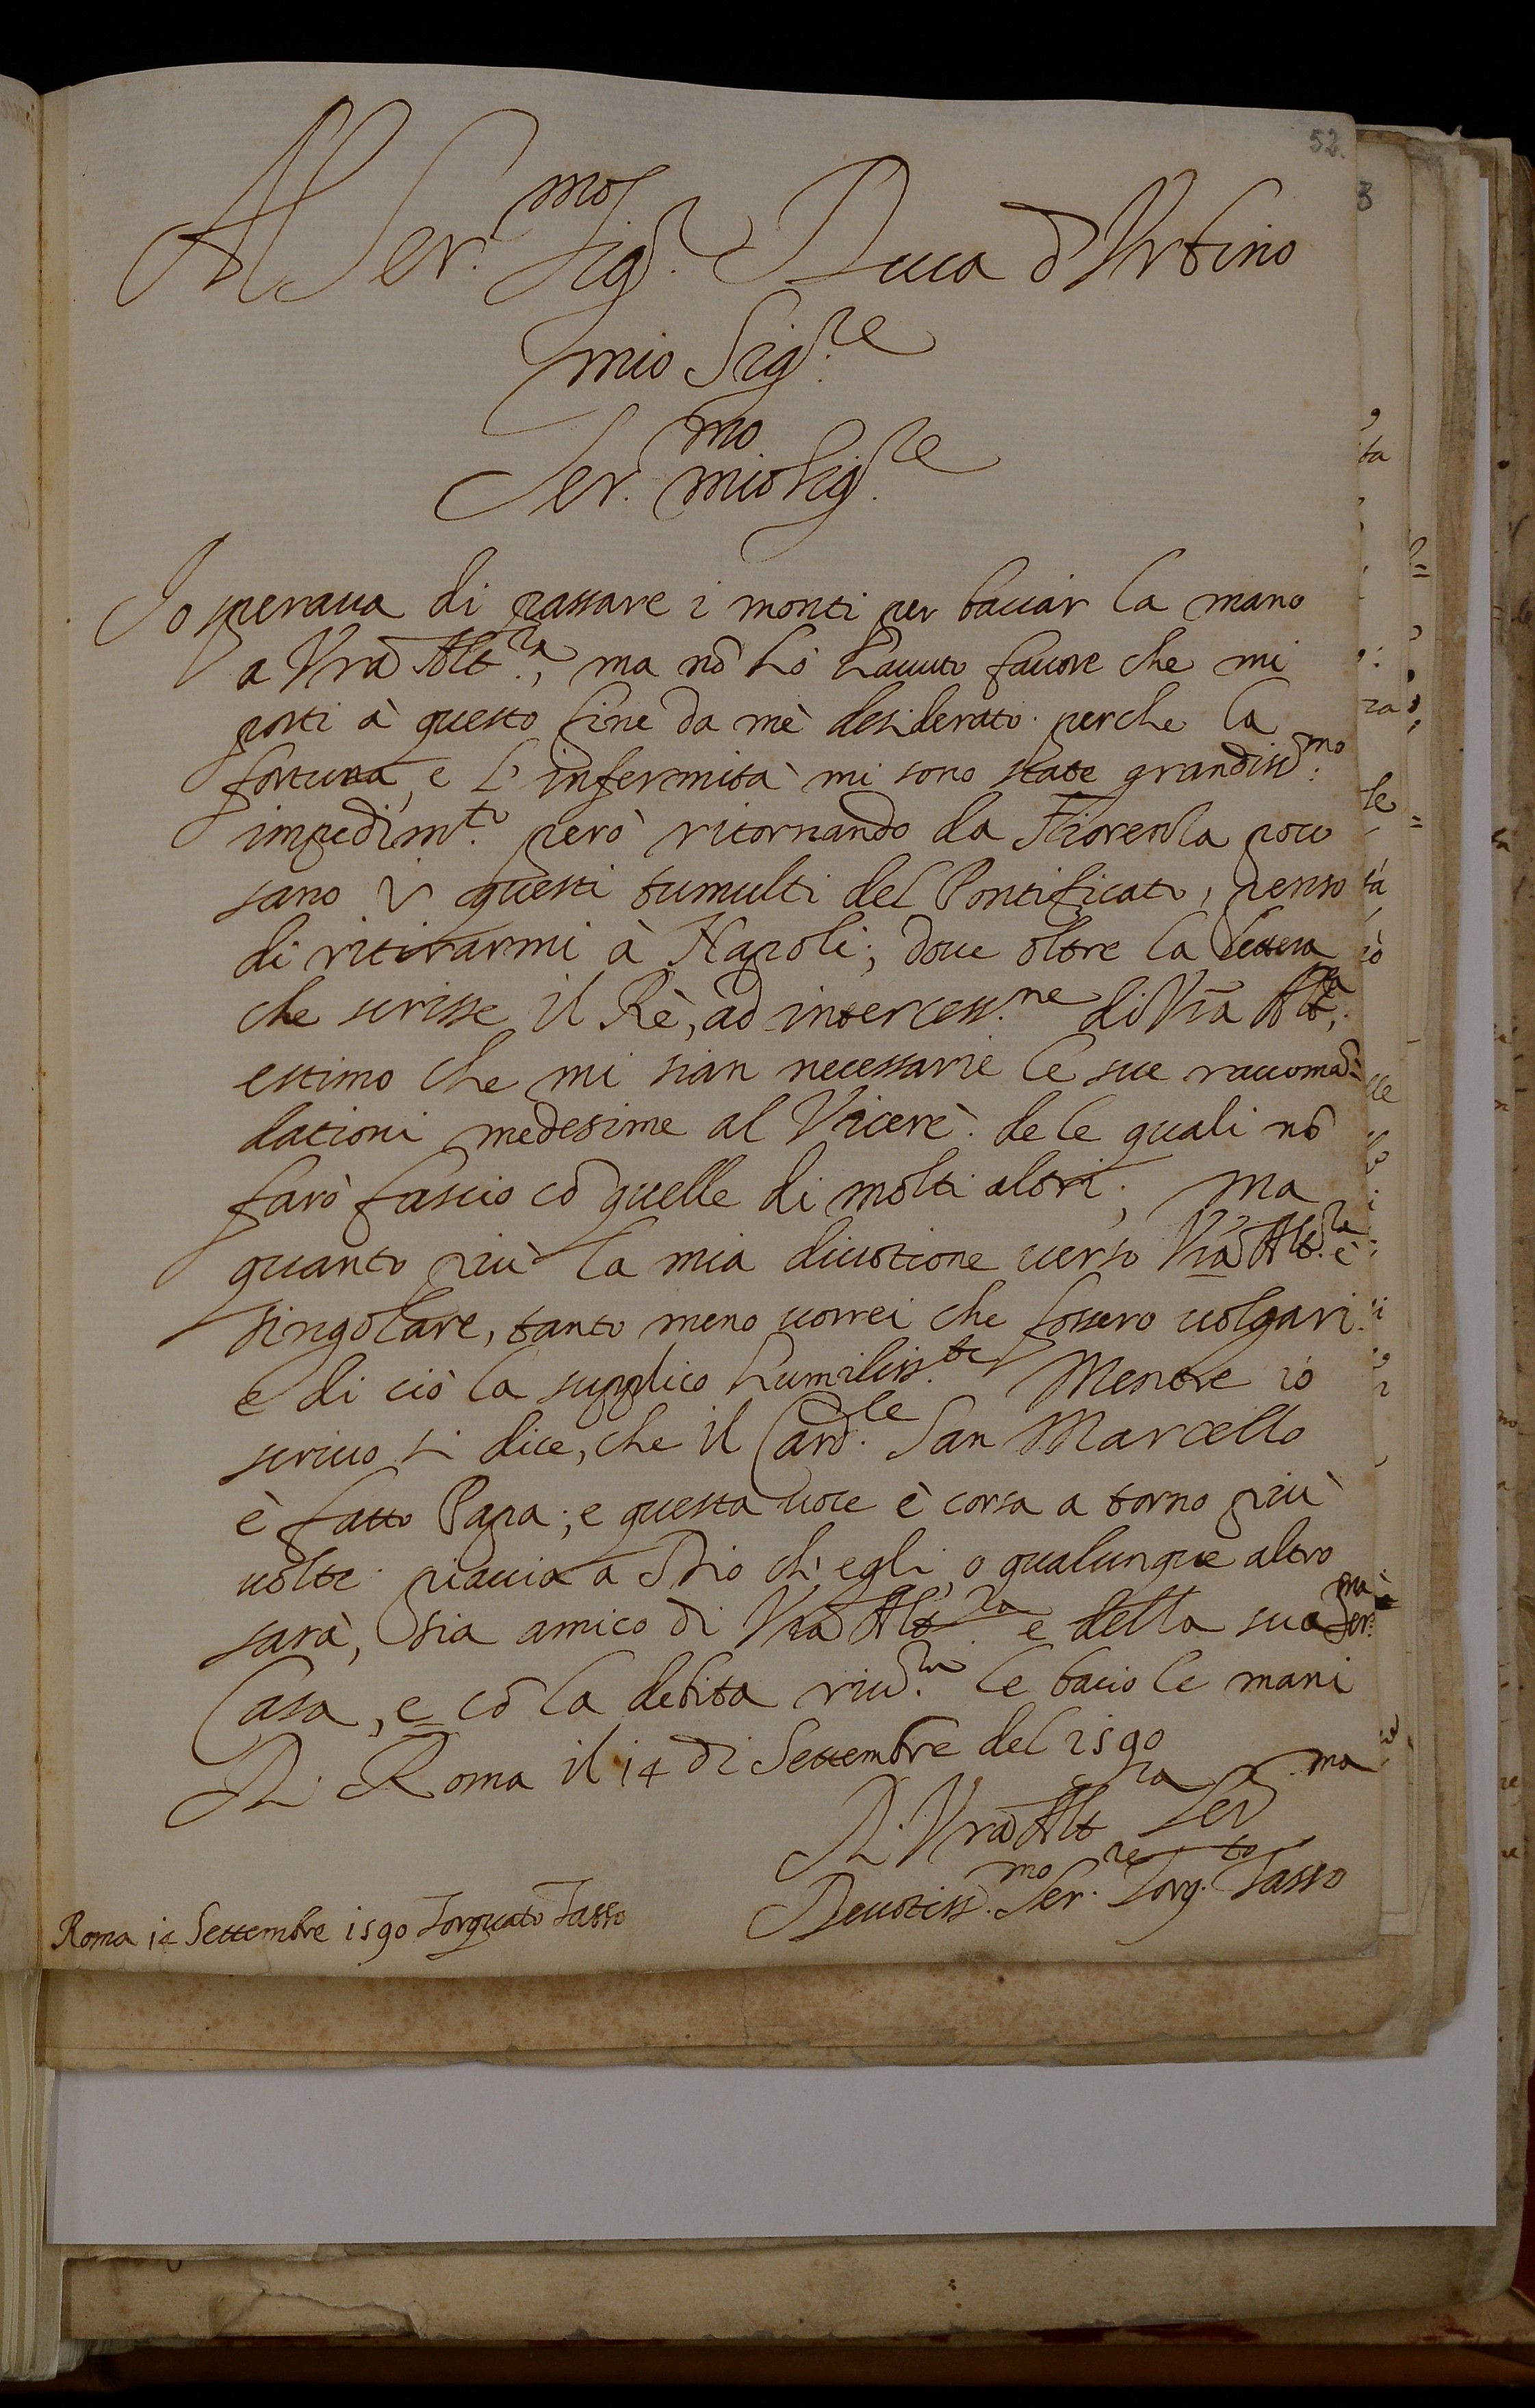 52.
Al Ser.mo Sig.re Duca d'Urbino
mio Sig.re
Ser.mo mio Sig.re
Io speraua di passare i monti per bacciar la mano
a Vrã Alt.za, ma nõ hò hauuto fauore che mi
porti à questo fine da mè desiderato. perche la
fortuna, e l'infermità mi sono state grandiss.mo
impedim.to però ritornando da Fiorenza poco
sano questi tumulti del Pontificato, penso
di ritirarmi à Napoli; doue oltre la lettera
che scrisse il Rè, ad intercess.ne di Vrã Alt.za,
estimo che mi sian necessarie le sue raccomã=
dationi medesime al Vicerè. de le quali nõ
farò fascio cõ quelle di molti altri; ma
quanto più la mia diuotione uerso Vrã Alt.za è
singolare, tanto meno uorrei che fossero uolgari.
e di ciò la supplico humiliss.te Mentre io
scriuo si dice, che il Card.le San Marcello
è fatto Papa; e questa uoce è corsa a torno più
uolte. piaccia a Dio ch'egli, o qualunque altro
sarà, sia amico di Vrã Alt.za e della sua Ser.ma
Casa, e cõ la debita riu.za le bacio le mani
Di Roma il 14 di Settembre del 1590
Di Vrã Alt.za Ser.ma
Deuotiss.mo Ser.re Torq.to Tasso
Roma 14 Settembre 1590 Torquato Tasso